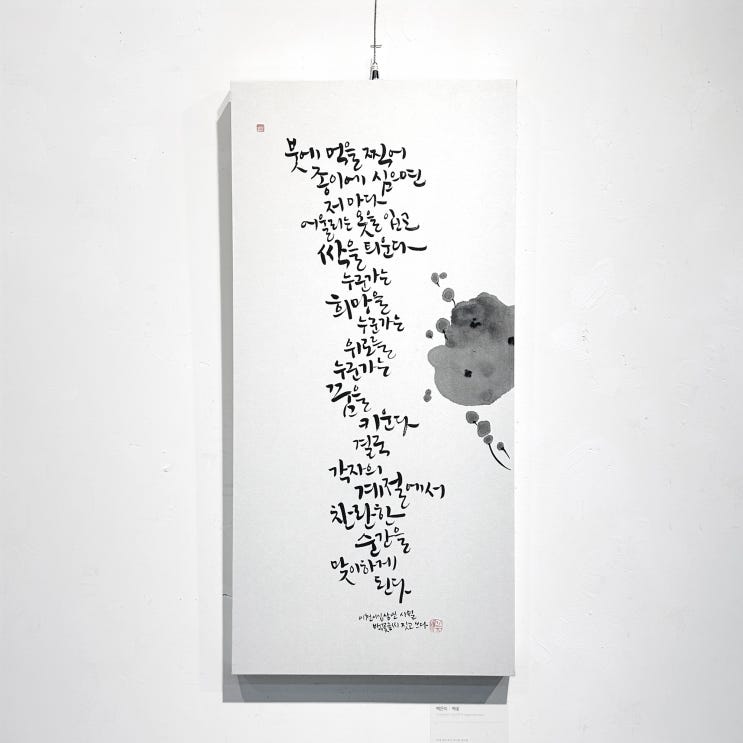 붓에 먹을 찍어
종이에 심으면
저마다
어울리는 옷을 입고
싹을 틔운다
누군가는
희망을
누군가는
위로를
누군가는
꿈을
키운다
결국
각자의
계절에서
찬란한
순간을
맞이하게
된다
이천이십삼년 시월
짓고 쓰다